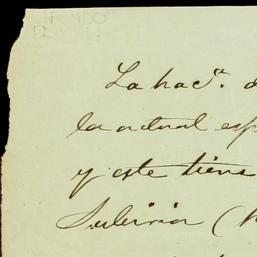 FONDO
La hac.ª d
la actual esp
y este tiene
Suberior (